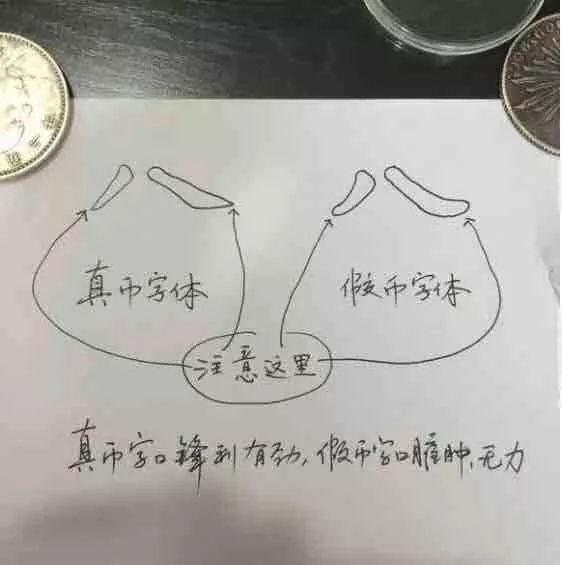 真币字体
假币字体
注意这里
真币字口锋利有劲,假币字口臃肿,无力